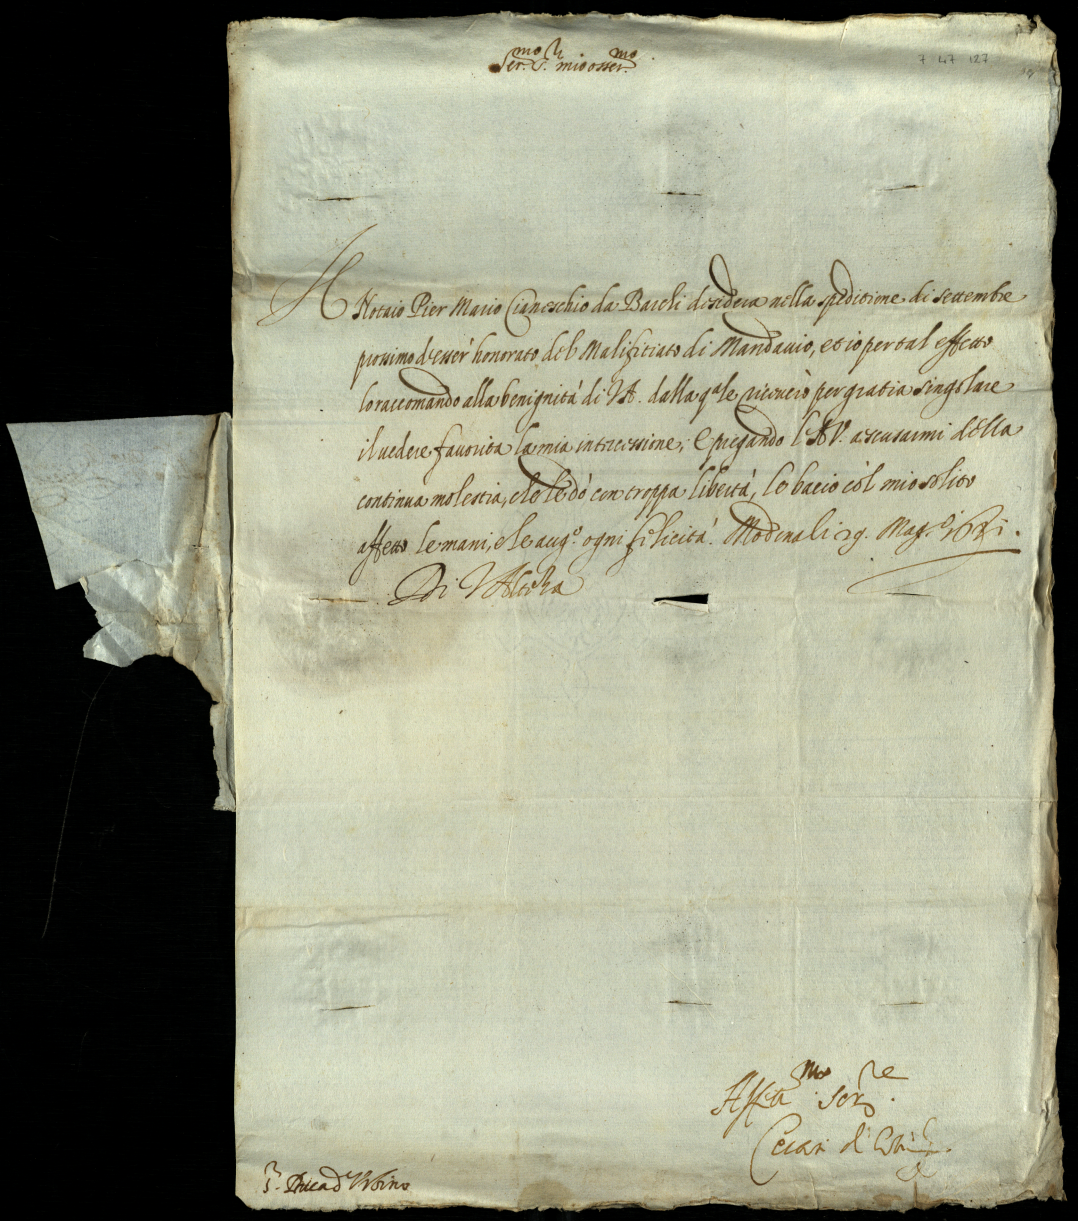 Ser.mo S.r mio osser.mo
7 47 127
Il Notaio Pier Mario Cianeschio da Barchi desidera nella speditione di settembre
prossimo d'esser honorato del Malifitiato di Mondauio, et io per tal effetto
lo raccomando alla benignità di V.A. dalla q.ale riceuerò per gratia singolare
il uedere fauorita la mia intercessione; E pregando l'A.V. a scusarmi della
continua molestia, che le dò con troppa libertà, le bacio còl mio solito
affetto le mani, e le aug.o ogni felicità. Modena li 29. Mag.o
Di V. Altezza
Affett.mo Ser.re
Cesare d'Este
S.r Duca d'Vrbino